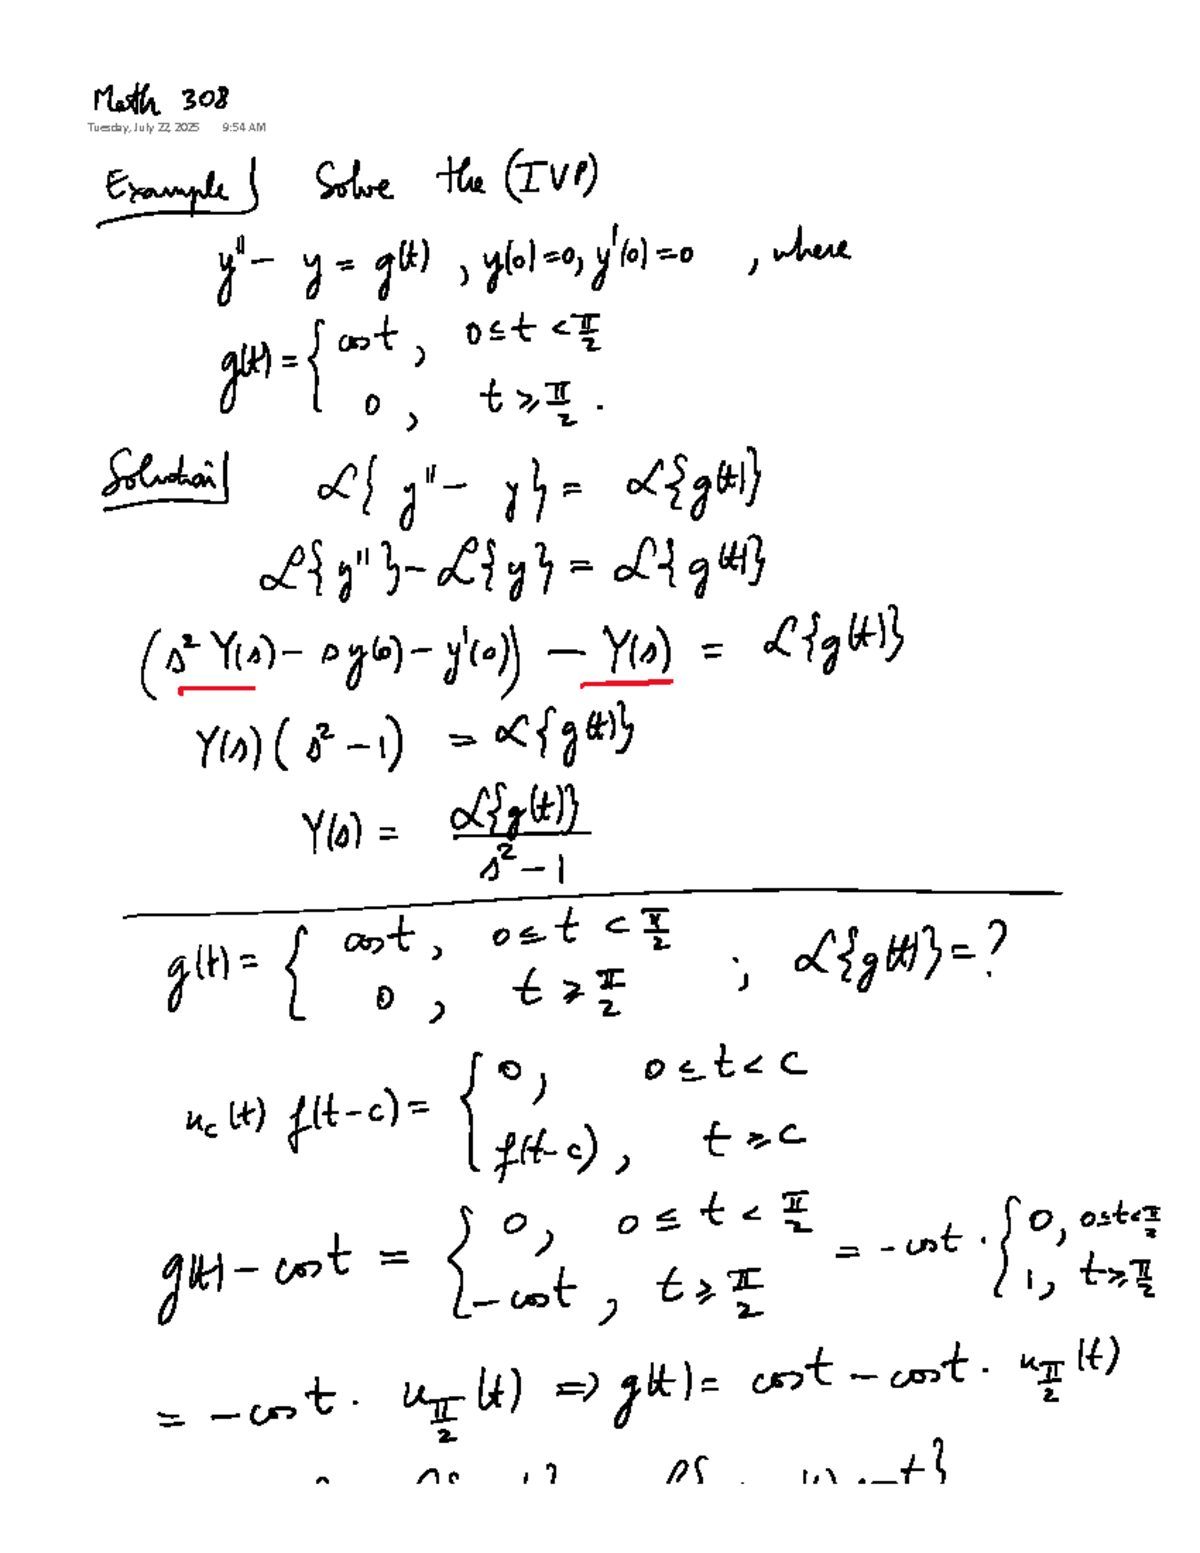 Math 308
Tuesday, July 22, 2025 9:54 AM
Example) Solve the (IVP)
y'' - y = g(t) , y(0)=0, y'(0)=0 , where
g(t) = { cost , 0 ≤ t < π/2
0 , t ≥ π/2 .
Solution) ℒ{ y'' - y } = ℒ{g(t)}
ℒ{y''} - ℒ{y} = ℒ{g(t)}
(s² Y(s) - s y(0) - y'(0)) - Y(s) = ℒ{g(t)}
Y(s) ( s² - 1) = ℒ{g(t)}
Y(s) = ℒ{g(t)} / s² - 1
g(t) = { cost , 0 ≤ t < π/2
0 , t ≥ π/2 ; ℒ{g(t)} = ?
u_c(t) f(t-c) = { 0 , 0 ≤ t < c
f(t-c) , t ≥ c
g(t) - cost = { 0 , 0 ≤ t < π/2 = - cost · { 0 , 0≤t<π/2
- cost , t ≥ π/2 1 , t ≥ π/2
= - cost · u_π/2 (t) ⇒ g(t) = cost - cost · u_π/2 (t)